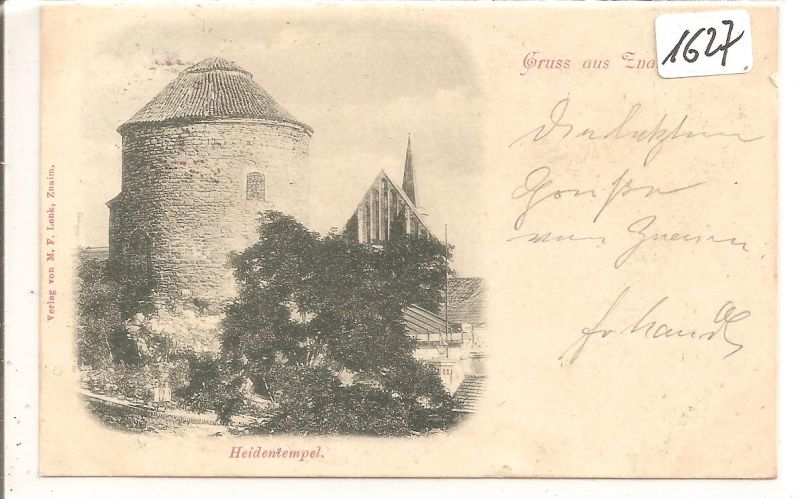 Gruss aus Zna
1627
Die letzten
Grüsse
von Znaim.
Verlag von M. F. Lenk, Znaim.
Heidentempel.